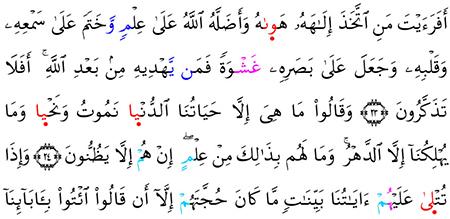 أَفَرَءَيْتَ مَنِ ٱتَّخَذَ إِلَـٰهَهُۥ هَوَىٰهُ وَأَضَلَّهُ ٱللَّهُ عَلَىٰ عِلْمٍ وَخَتَمَ عَلَىٰ سَمْعِهِۦ
وَقَلْبِهِۦ وَجَعَلَ عَلَىٰ بَصَرِهِۦ غَشْوَةً فَمَن يَّهْدِيهِ مِنۢ بَعْدِ ٱللَّهِ ۚ أَفَلَا
تَذَكَّرُونَ ﴿٢٣﴾ وَقَالُوا۟ مَا هِىَ إِلَّا حَيَاتُنَا ٱلدُّنْيَا نَمُوتُ وَنَحْيَا وَمَا
يُهْلِكُنَآ إِلَّا ٱلدَّهْرُ ۚ وَمَا لَهُم بِذَٰلِكَ مِنْ عِلْمٍ ۖ إِنْ هُمْ إِلَّا يَظُنُّونَ ﴿٢٤﴾ وَإِذَا
تُتْلَىٰ عَلَيْهُمْ ءَايَـٰتُنَا بَيِّنَـٰتٍ مَّا كَانَ حُجَّتَهُمْ إِلَّآ أَن قَالُوا۟ ٱئْتُوا۟ بِـَٔابَآئِنَآ